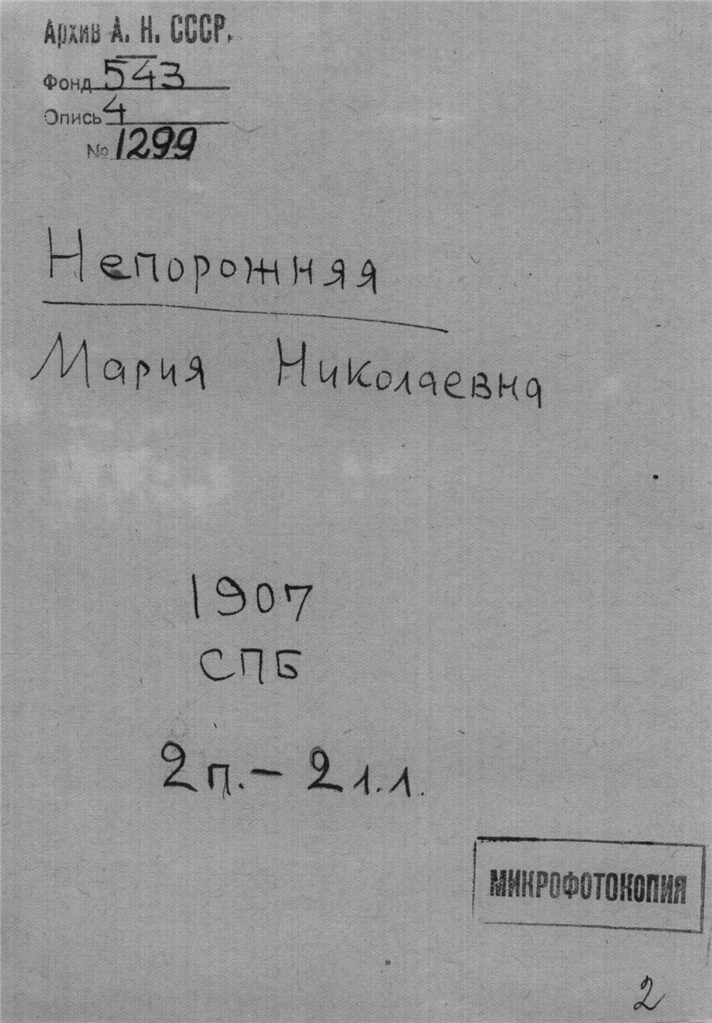 Архив А. Н. СССР.
Фонд 543
Опись 4
№ 1299
Непорожняя
Мария Николаевна
1907
СПБ
2 п. – 2 л.л.
МИКРОФОТОКОПИЯ
2